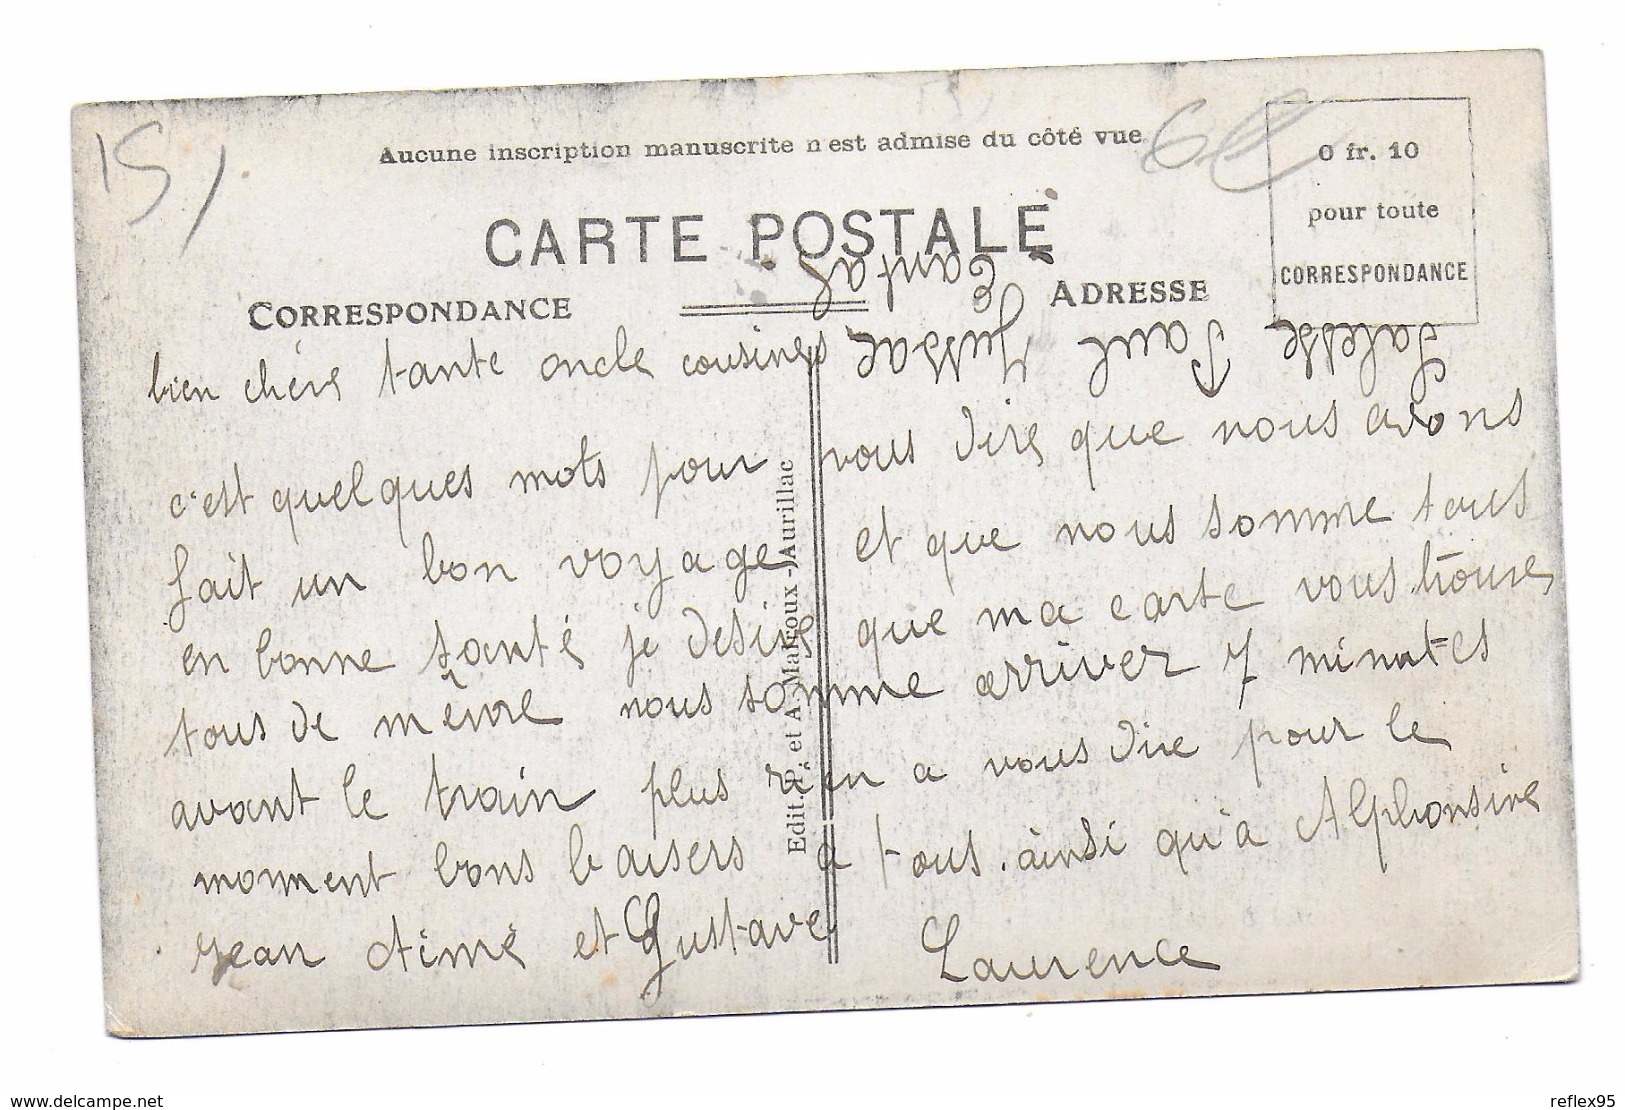 15/
6€
Aucune inscription manuscrite n'est admise du côté vue
CARTE POSTALE
0 fr. 10
pour toute
CORRESPONDANCE
CORRESPONDANCE
ADRESSE
Salesse Paul Jussac
Cantal
bien chère tante oncle cousines
c'est quelques mots pour vous dire que nous avons
fait un bon voyage et que nous somme tous
en bonne santé je desire que ma carte vous trouve
tous de même nous somme arriver 7 minutes
avant le train plus rien a vous dire pour le
moment bons baisers a tous. ainsi qu'à Alphonsine
Jean Aimé et Gustave Laurence
Edit. P. et A. Malroux - Aurillac
www.delcampe.net
reflex95